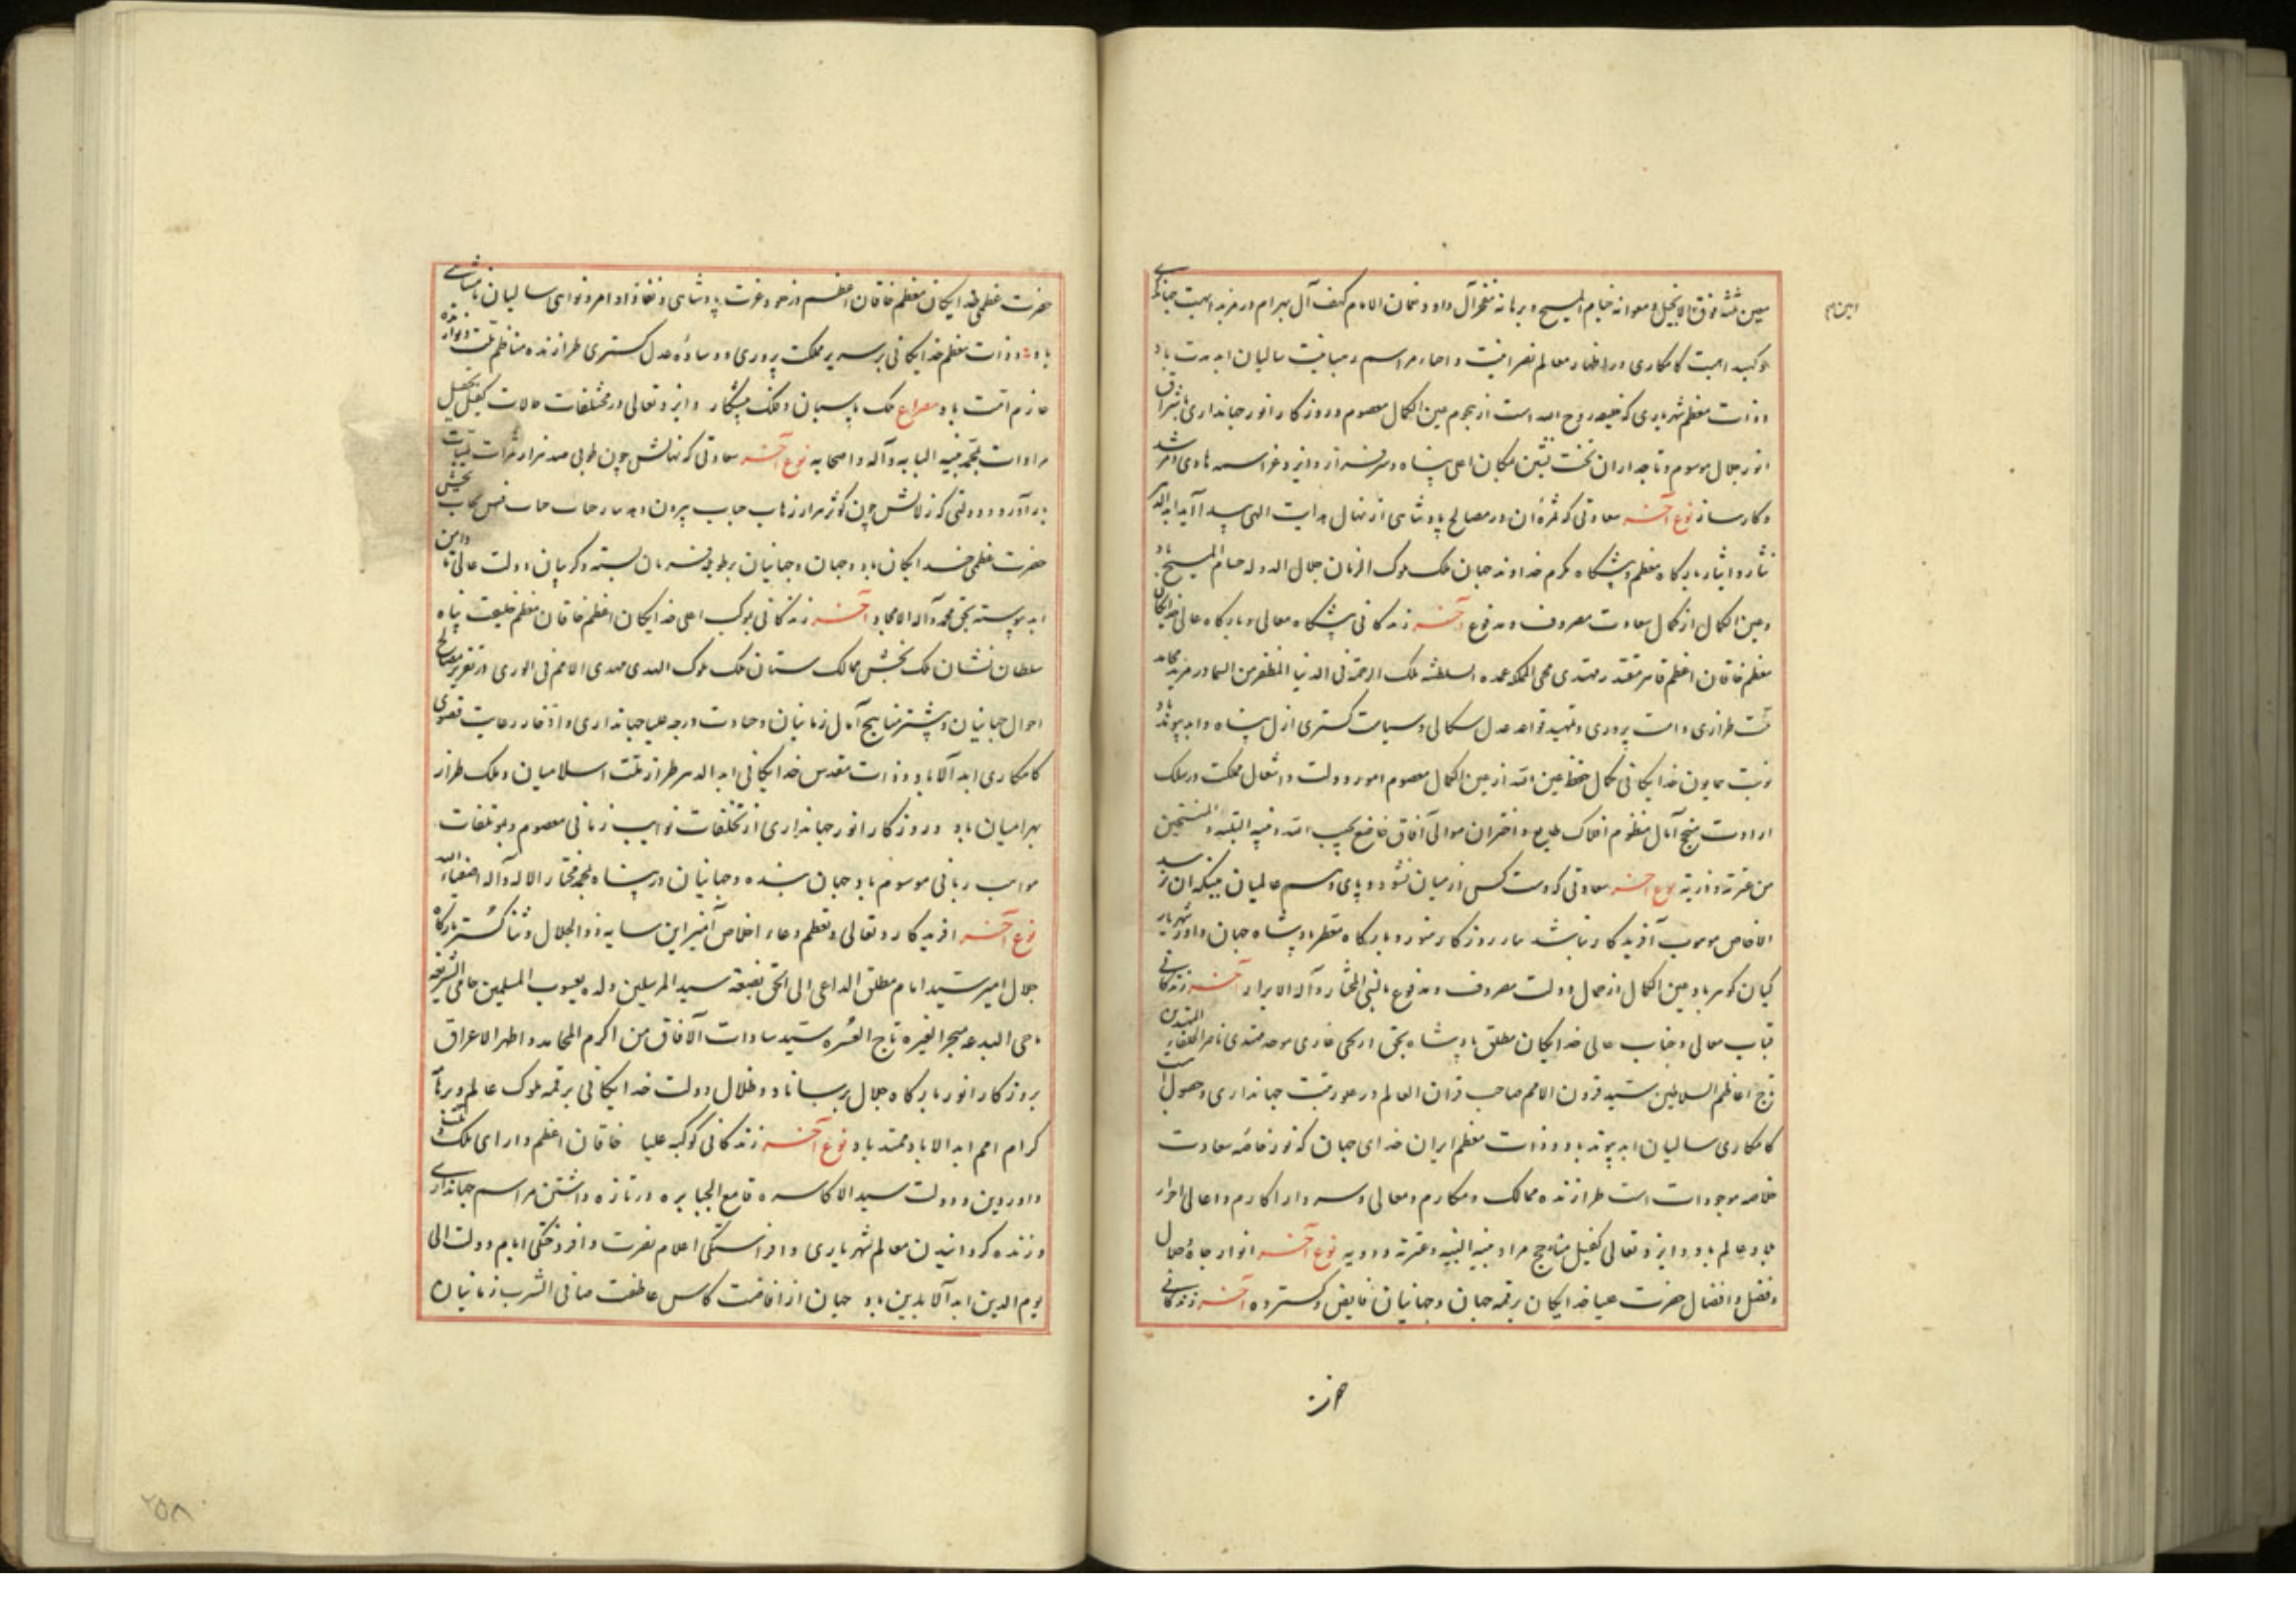 معین ملته فوق الانجیل و معوانه خیام المسیح و برهانه مفخر آل داود و نعمان الامام کهف آل بهرام در مزید اهبت جهانگیری
وکید اهبت کامکاری در اظهار معالم نصرانیت و احیاء مراسم رهبانیت سالیان ابد مدت باد
و ذات معظم شهریاری که خلیفه روح الله است از هجوم عین الکمال معصوم و روزگار انور جهانداری باشراق
انور جلال موسوم و تاجداران تخت نشین بمکان اعلی پناه و سرفراز و ایزد عز اسمه هادی و مرشد
و کارساز نوع آخر سعادتی که ثمره آن در مصالح پادشاهی از نهال هدایت الهی پیدا آید ابد الدهر
نثار و ایثار بارگاه معظم و پیشگاه مکرم خداوند جهان ملک ملوک الزمان جلال الدوله حسام المسیح باد
و عین الکمال از کمال سعادت مصروف و مدفوع آخر زندگانی پیشگاه معالی و بارگاه عالی خدایگان
معظم خاقان اعظم قاهر مقتدر مهتدی محیی المکارم عمده السلطنه ملک الرحمة فی الدنیا المظفر من السما در مزید محامد
ملت طرازی و امت پروری و تمهید قواعد عدل سکالی و سیاست گستری ازل پناه و ابد پیوند باد
نوبت همایون خدایگانی بکمال حفظ عین الله از عین الکمال معصوم امور دولت و اشغال مملکت در سلک
ارادت منهج آمال منظوم افلاک طایع و اختران موالی آفاق خاضع بحبیب الله و نبیه النبیه و المنتجبین
من عترته و ذریته نوع آخر سعادتی که دست کس از میان نشود و پای وسم عالمیان بمیکه ان نرسد
الا خاص موهوب آفریدگار نباشد نثار روزگار منور و بارگاه مطهر پادشاه جهان داور شهریار
کیان گوهر باد عین الکمال از جمال دولت مصروف و مدفوع بالنبی المختار و آله الابرار آخر زندگانی
قباب معالی و جناب عالی خدایگان مطلق پادشاه بحق اریحی غازی موحد مهتدی ناصر الخلفاء المهتدین
تاج اعاظم السلاطین سید قرون الامم صاحب قران العالم در علو رتبت جهانداری و حصول اهبت
کامکاری سالیان ابد پیوند باد و ذات معظم ایران خدای جهان که نور خاصه سعادت
خلاصه موجودات است طرازنده ممالک و مکارم و معالی و سردار اکارم و اعالی احرار
بلاد عالم باد و ایزد تعالی کفیل مناهج مراد بنبیه النبیه و عترته و ذویه نوع آخر انوار جاه و جلال
و فضل و افضال حضرت علیا خدایگان بر قمه جهان و جهانیان فایض و گسترده آخر زندگانی
حضرت
حضرت عظمی خدایگان معظم خاقان اعظم در علو عزت پادشاهی و نفاذ اوامر و نواهی سالیان نامتناهی
باد و ذات معظم خدایگانی بر سریر مملکت پروری و وساده عدل گستری طرازنده مناظم ملت و نوازنده
عازم امت باد مصراع ملک پاسبان و فلک پیشکار و ایزد تعالی در مختلفات حالات کفیل تحصیل
مرادات بمحمد نبیه النابه و آله و اصحابه نوع آخر سعادتی که نهالش چون طوبی صد هزار ثمرات طیبات
بار آورد و دولتی که زلالش چون کوثر هزار زهاب حباب بیرون دهد نثار جناب سحاب بخشش
حضرت عظمی خدایگان باد و جهان و جهانیان بر طویله فرمان بسته و گریبان دولت عالی تا دامن
ابد پیوسته بحق محمد و آله الامجاد آخر زندگانی موکب اعلی خدایگان اعظم خاقان معظم خلیفت پناه
سلطان نشان ملک بخش ممالک ستان ملک ملوک الهدی مهدی الامم فی الوری در تقریر مصالح
احوال جهانیان و پیشتر مناهج آمال زمانیان و حیازت درجه علیا جهانداری و ادخار رعایت قصوی
کامکاری ابد الاباد و ذات مقدس خدایگانی ابد الدهر طراز ملت اسلامیان و ملک طراز
بهرامیان باد و روزگار انور جهانداری از تخلفات نوایب زمانی معصوم و بموتلفات
مواهب ربانی موسوم باد جهان بنده و جهانیان در پناه بمحمد مختار الاله و آله اصفیاء الله
نوع آخر آفریدگار تعالی و تعظم دعاء اخلاص آمیز این سایه ذو الجلال و ثنا گستر بارگاه
جلال امیر سید امام مطلق الداعی الی الحق بضعة سید المرسلین ولد یعسوب المسلمین حامی الشریعه
ماحی البدعه مبجر الغبره تاج العتره سید سادات الآفاق من اکرم المحامد و اطهر الاعراق
بروزگار انور بارگاه جلال برساناد و ظلال دولت خدایگانی بر قمه ملوک عالم و برهان
کرام امم ابد الاباد ممتد باد نوع آخر زندگانی کوکبه علیا خاقان اعظم دارای ملک
داور دین و دولت سید الاکاسره قامع الجبابره در تازه داشتن مراسم جهانداری
و زنده گردانیدن معالم شهریاری و افراشتگی اعلام نصرت و افروختگی ایام دولت الی
یوم الدین ابد الآبدین باد جهان از افاضت کاس عاطفت صافی الشرب زمانیان
۲۵۸